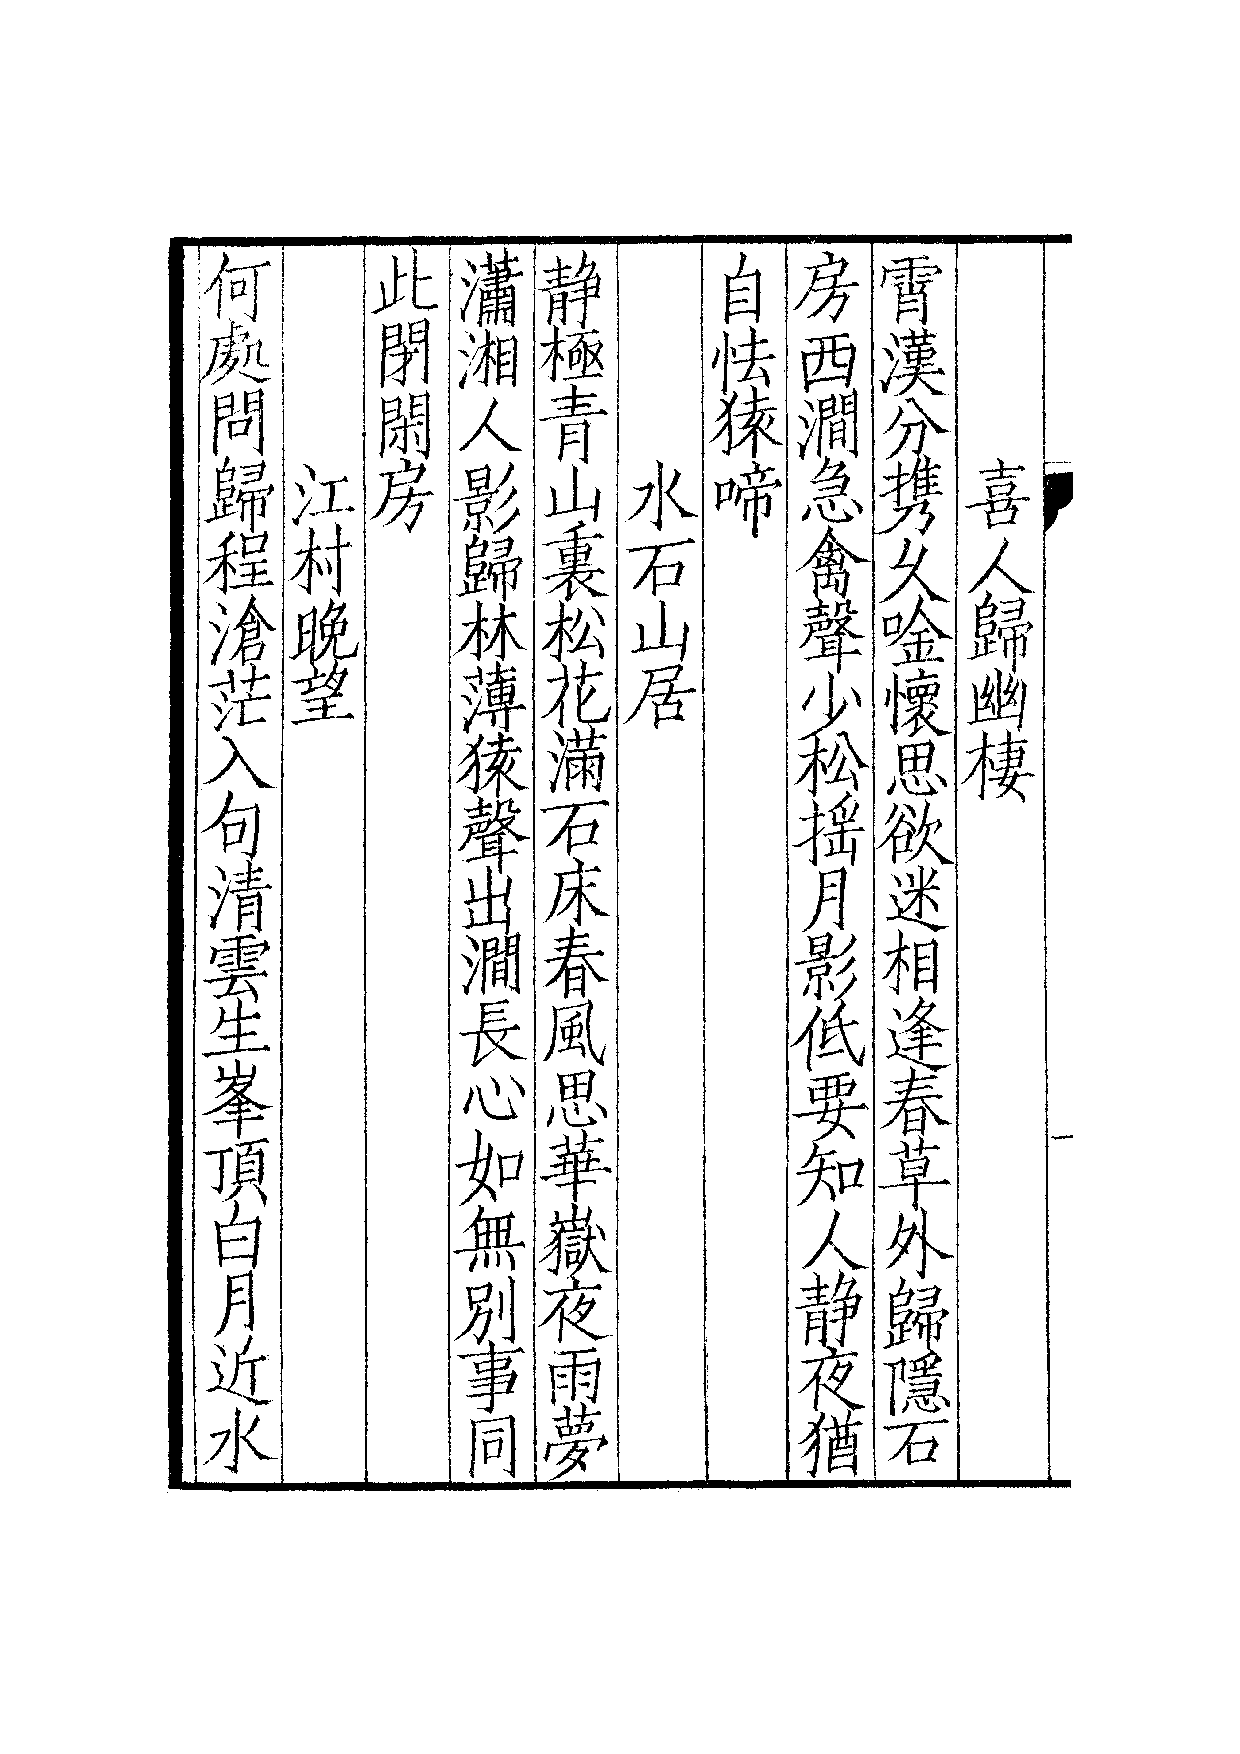 喜人歸幽棲
霄漢分携久唫懷思欲迷相逢春草外歸隱石
房西澗急禽聲少松揺月影低要知人静夜猶
自怯猿啼
水石山居
静極青山裏松花滿石床春風思華嶽夜雨夢
瀟湘人影歸林薄猿聲出澗長心如無別事同
此閉閑房
江村晚望
何處問歸程滄茫入句清雲生峯頂白月近水
一